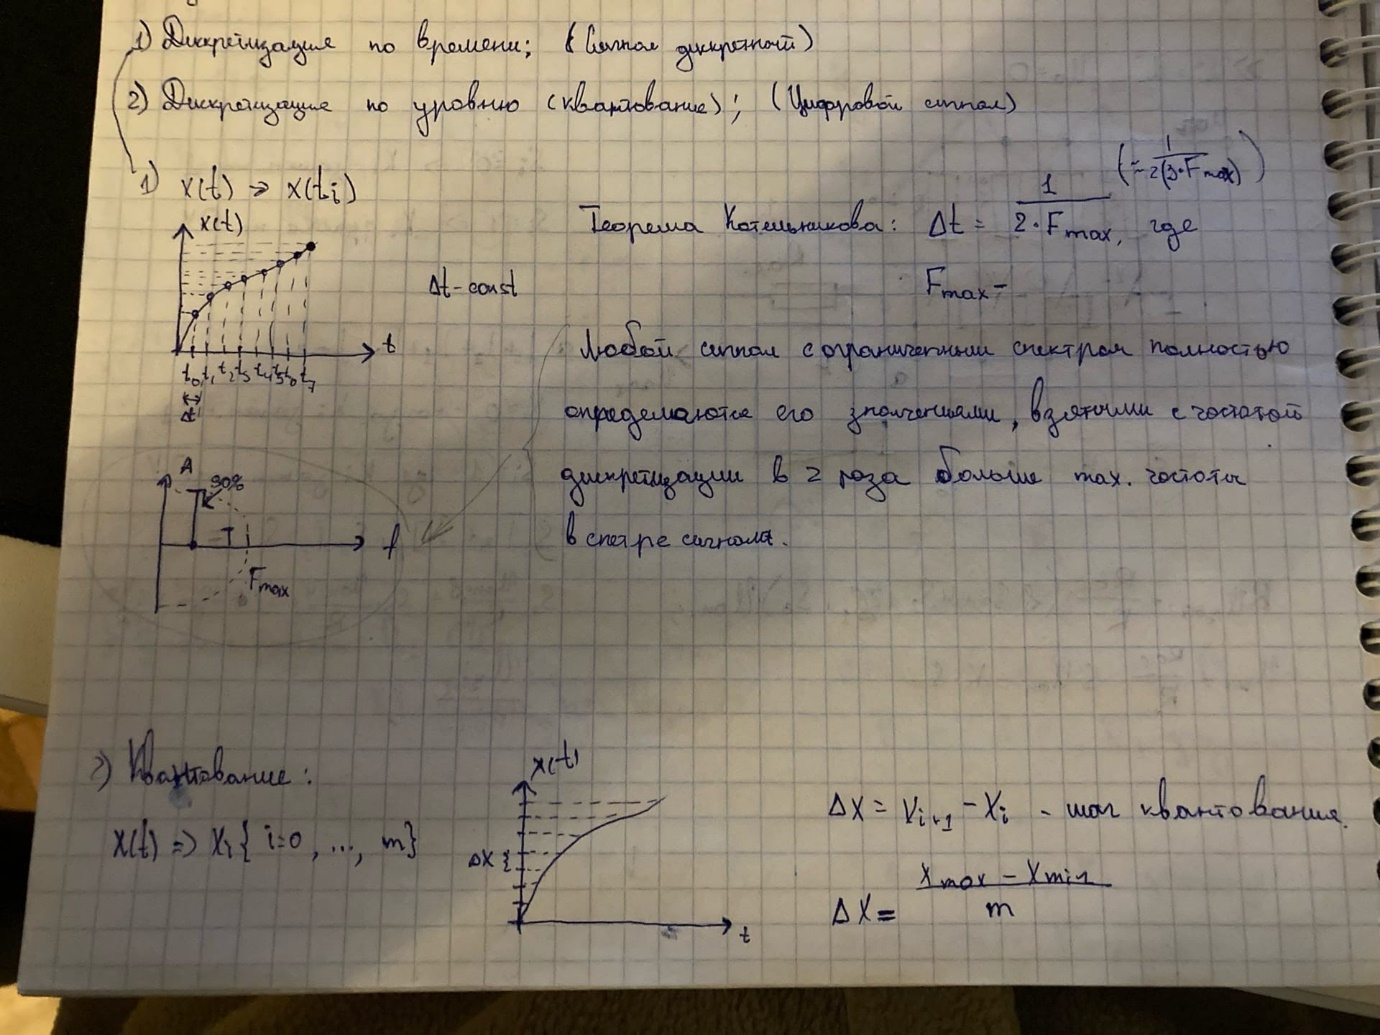 1) Дискретизация по времени; (Сигнал дискретный)
2) Дискретизация по уровню (квантование); (Цифровой сигнал)
1) x(t) → x(ti)
x(t)
Δt-const
t
t0 t1 t2 t3 t4 t5 t6 t7
Δt
Теорема Котельникова: Δt = 1 / 2·Fmax, где (≈ 1 / 2(3·Fmax))
Fmax –
Любой сигнал с ограниченным спектром полностью
определяются его значениями, взятыми с частотой
дискретизации в 2 раза больше max. частоты
в спетре сигнала.
A
90%
f
Fmax
2) Квантование:
x(t) => xi { i=0, ..., m}
x(t)
Δx {
t
Δx = xi+1 - xi - шаг квантования.
Δx = xmax - xmin / m